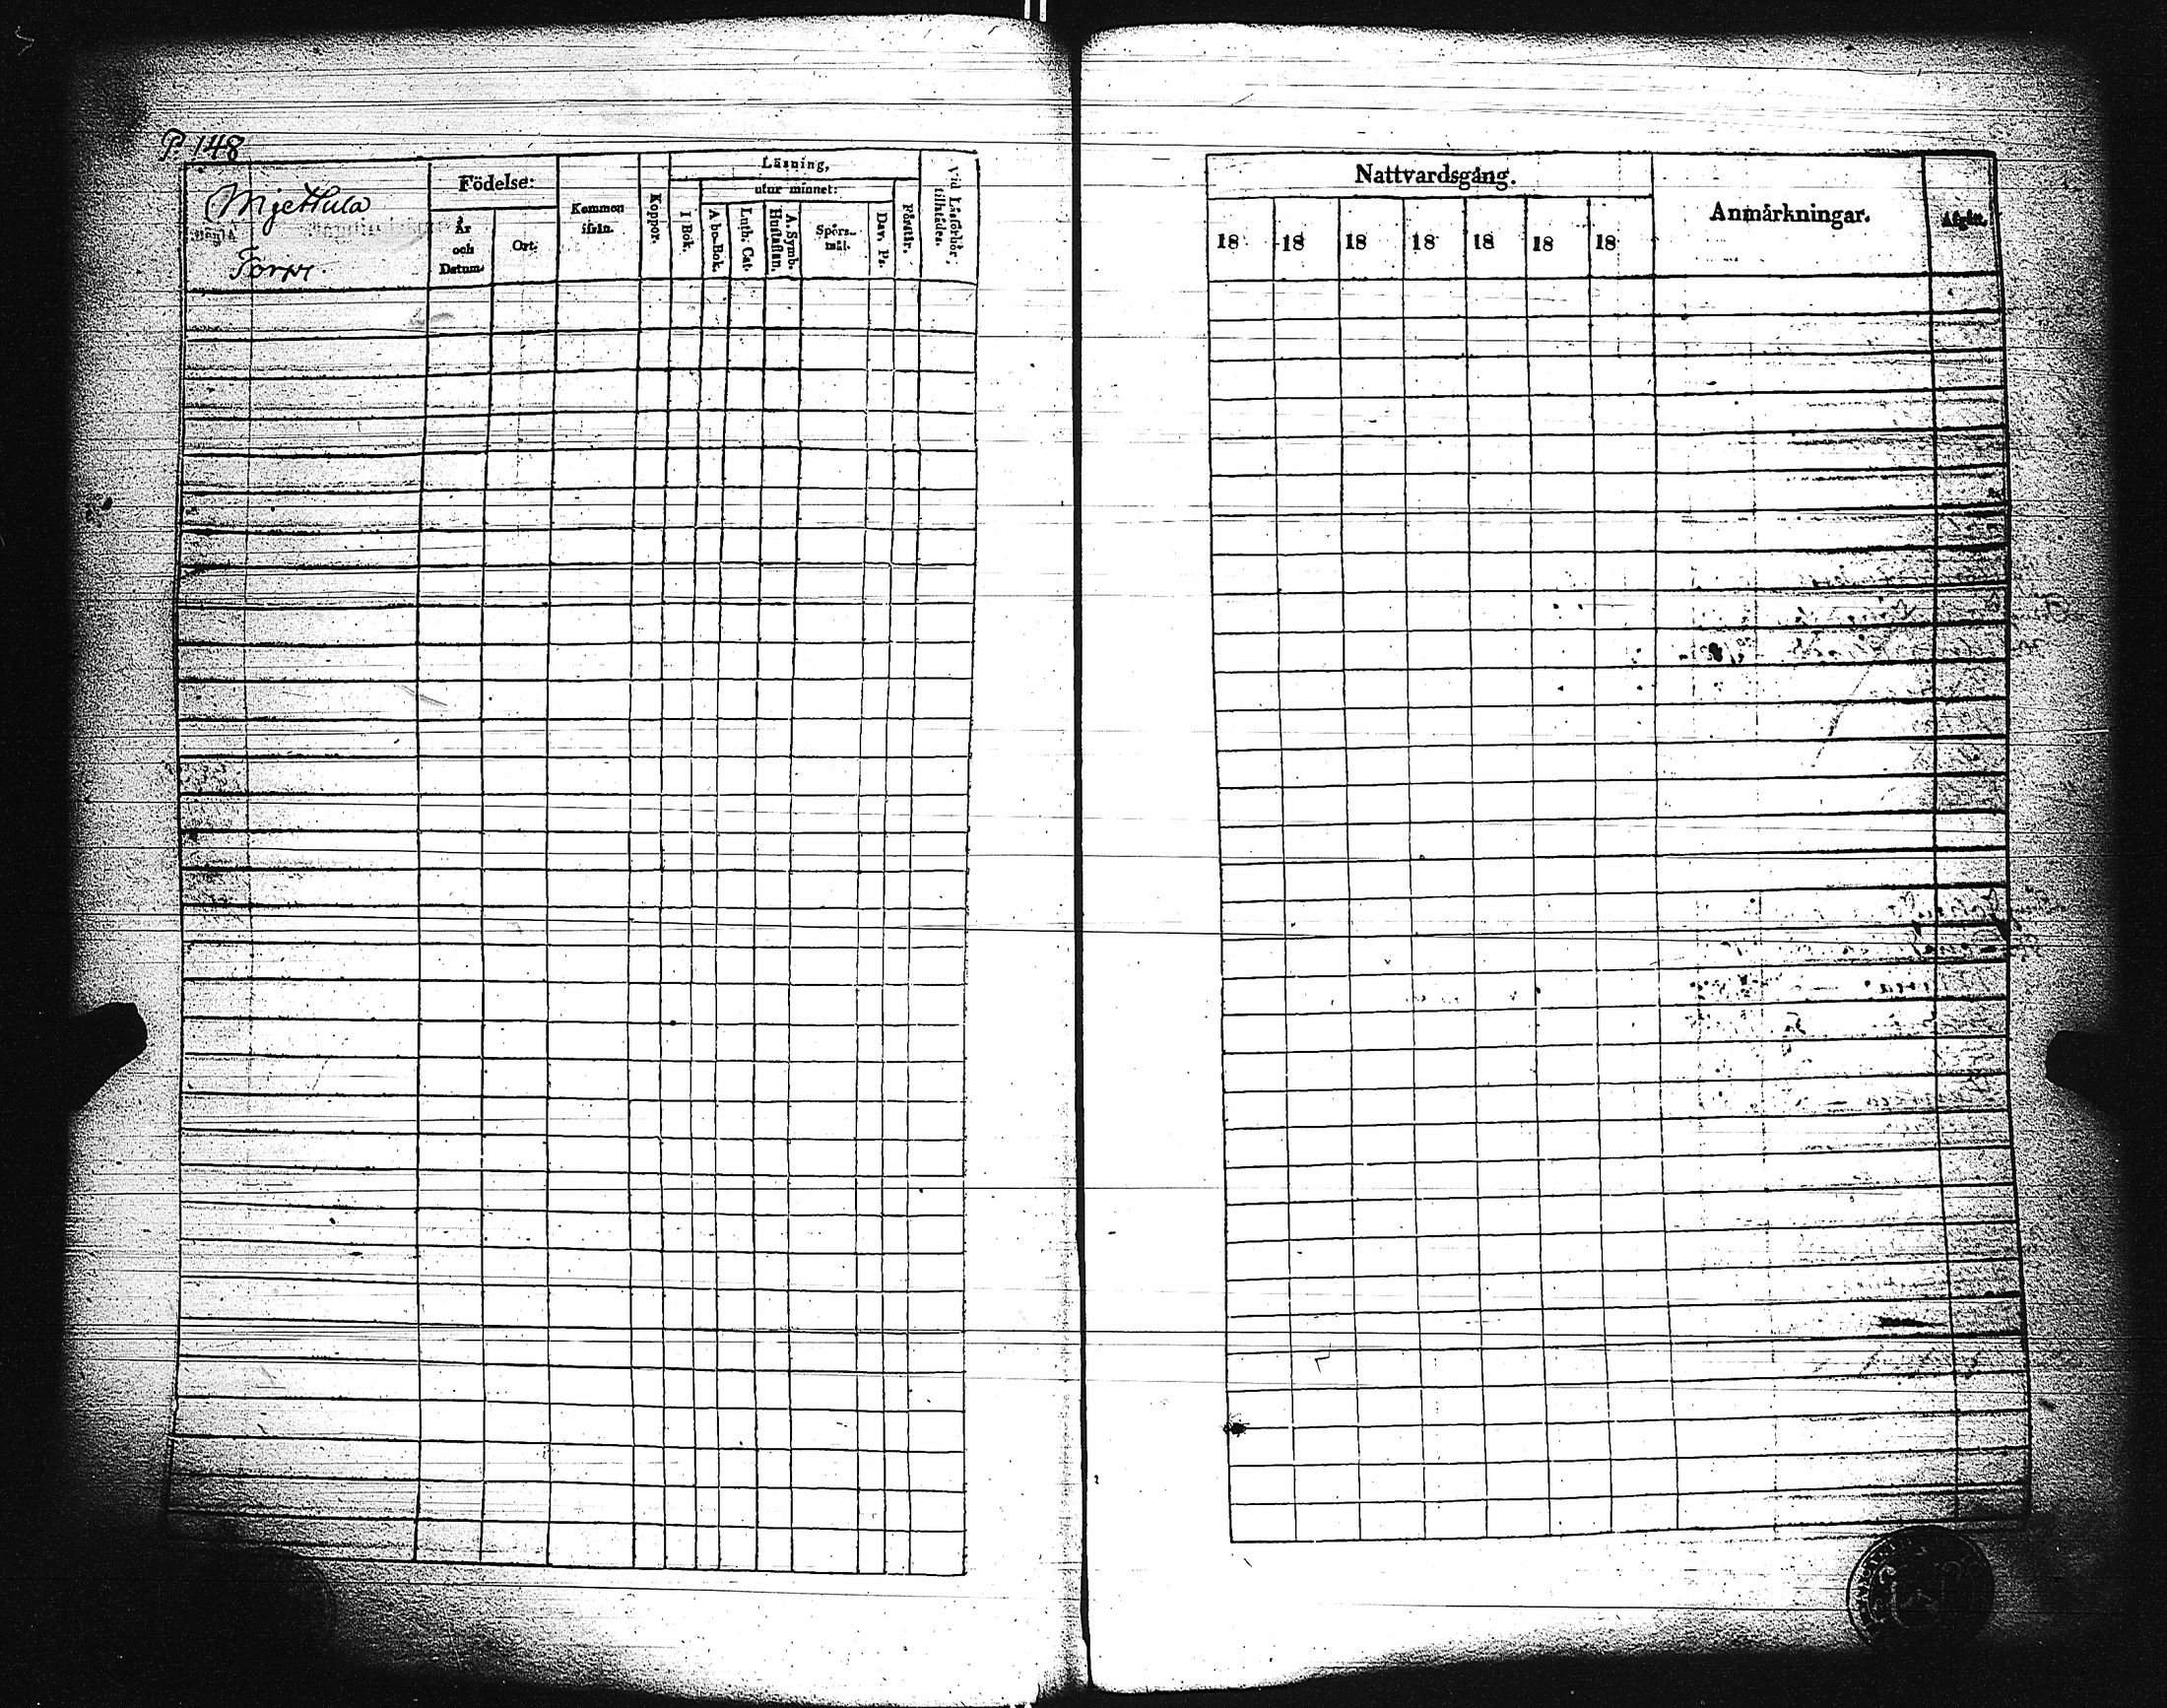 P. 148
Mjettula
Torp
Födelse:
År
och
Datum.
Ort.
Kommen
ifrån.
Koppor.
Läsning,
utur minnet:
I Bok.
A bc-Bok.
Luth. Cat.
A. Symb.
Hustaflan.
Spörs-
mål.
Dav. Ps.
Förstår.
Vid Läsförhör
tillstädes.
Nattvardsgång.
18 18 18 18 18 18 18
Anmärkningar.
Afgått.